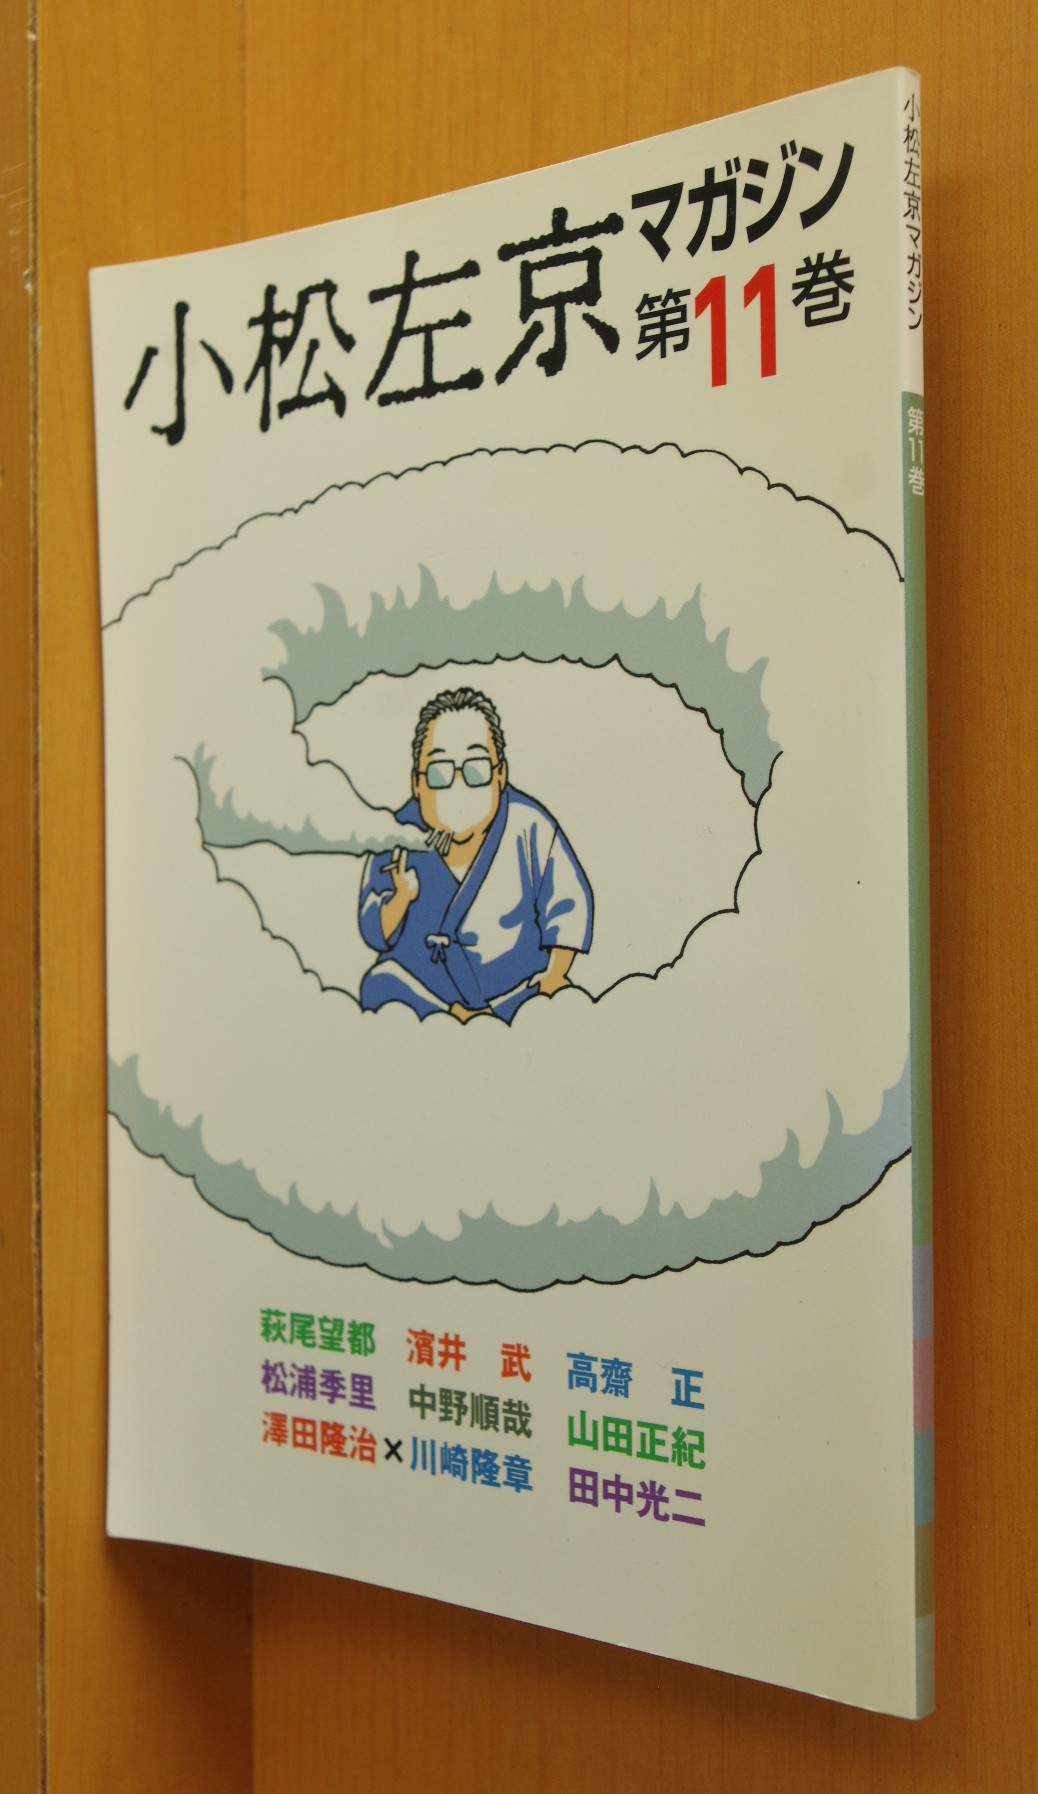 小松左京マガジン
第11巻
萩尾望都 濱井 武 高齋 正
松浦季里 中野順哉 山田正紀
澤田隆治×川崎隆章 田中光二
小松左京マガジン 第11巻